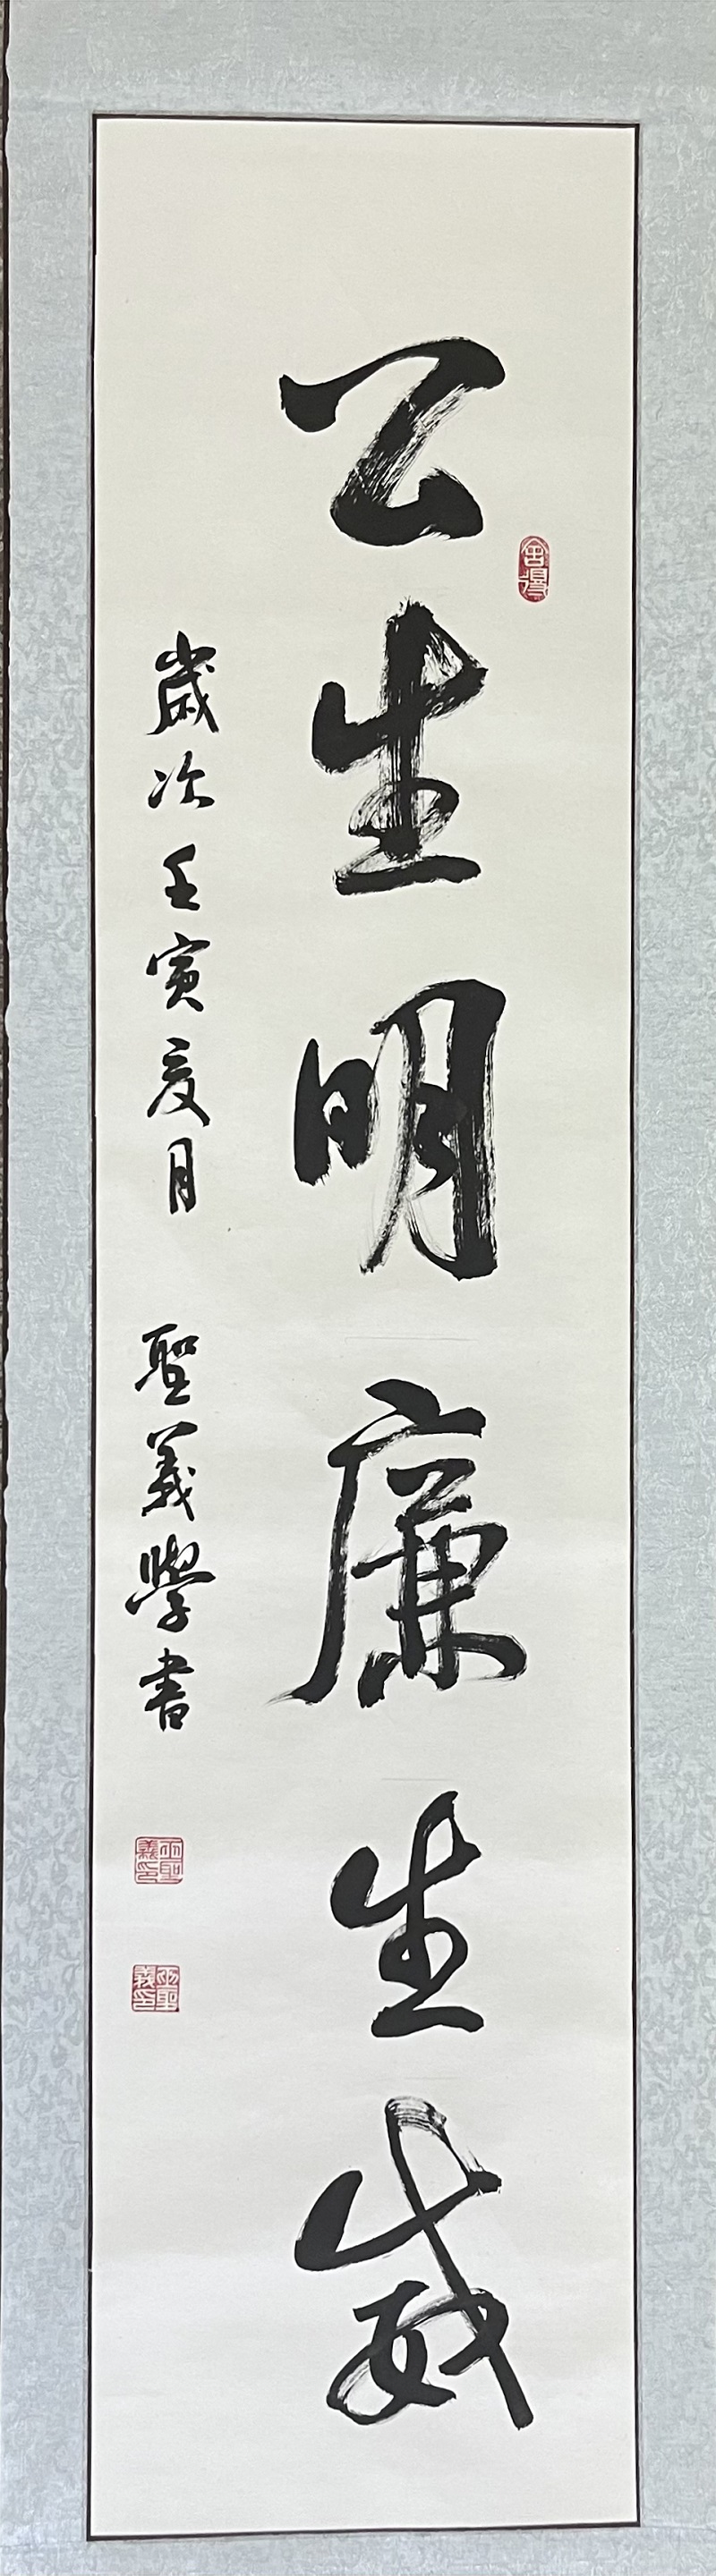 公生明廉生威
歲次壬寅夏月
聖義學書
舍得